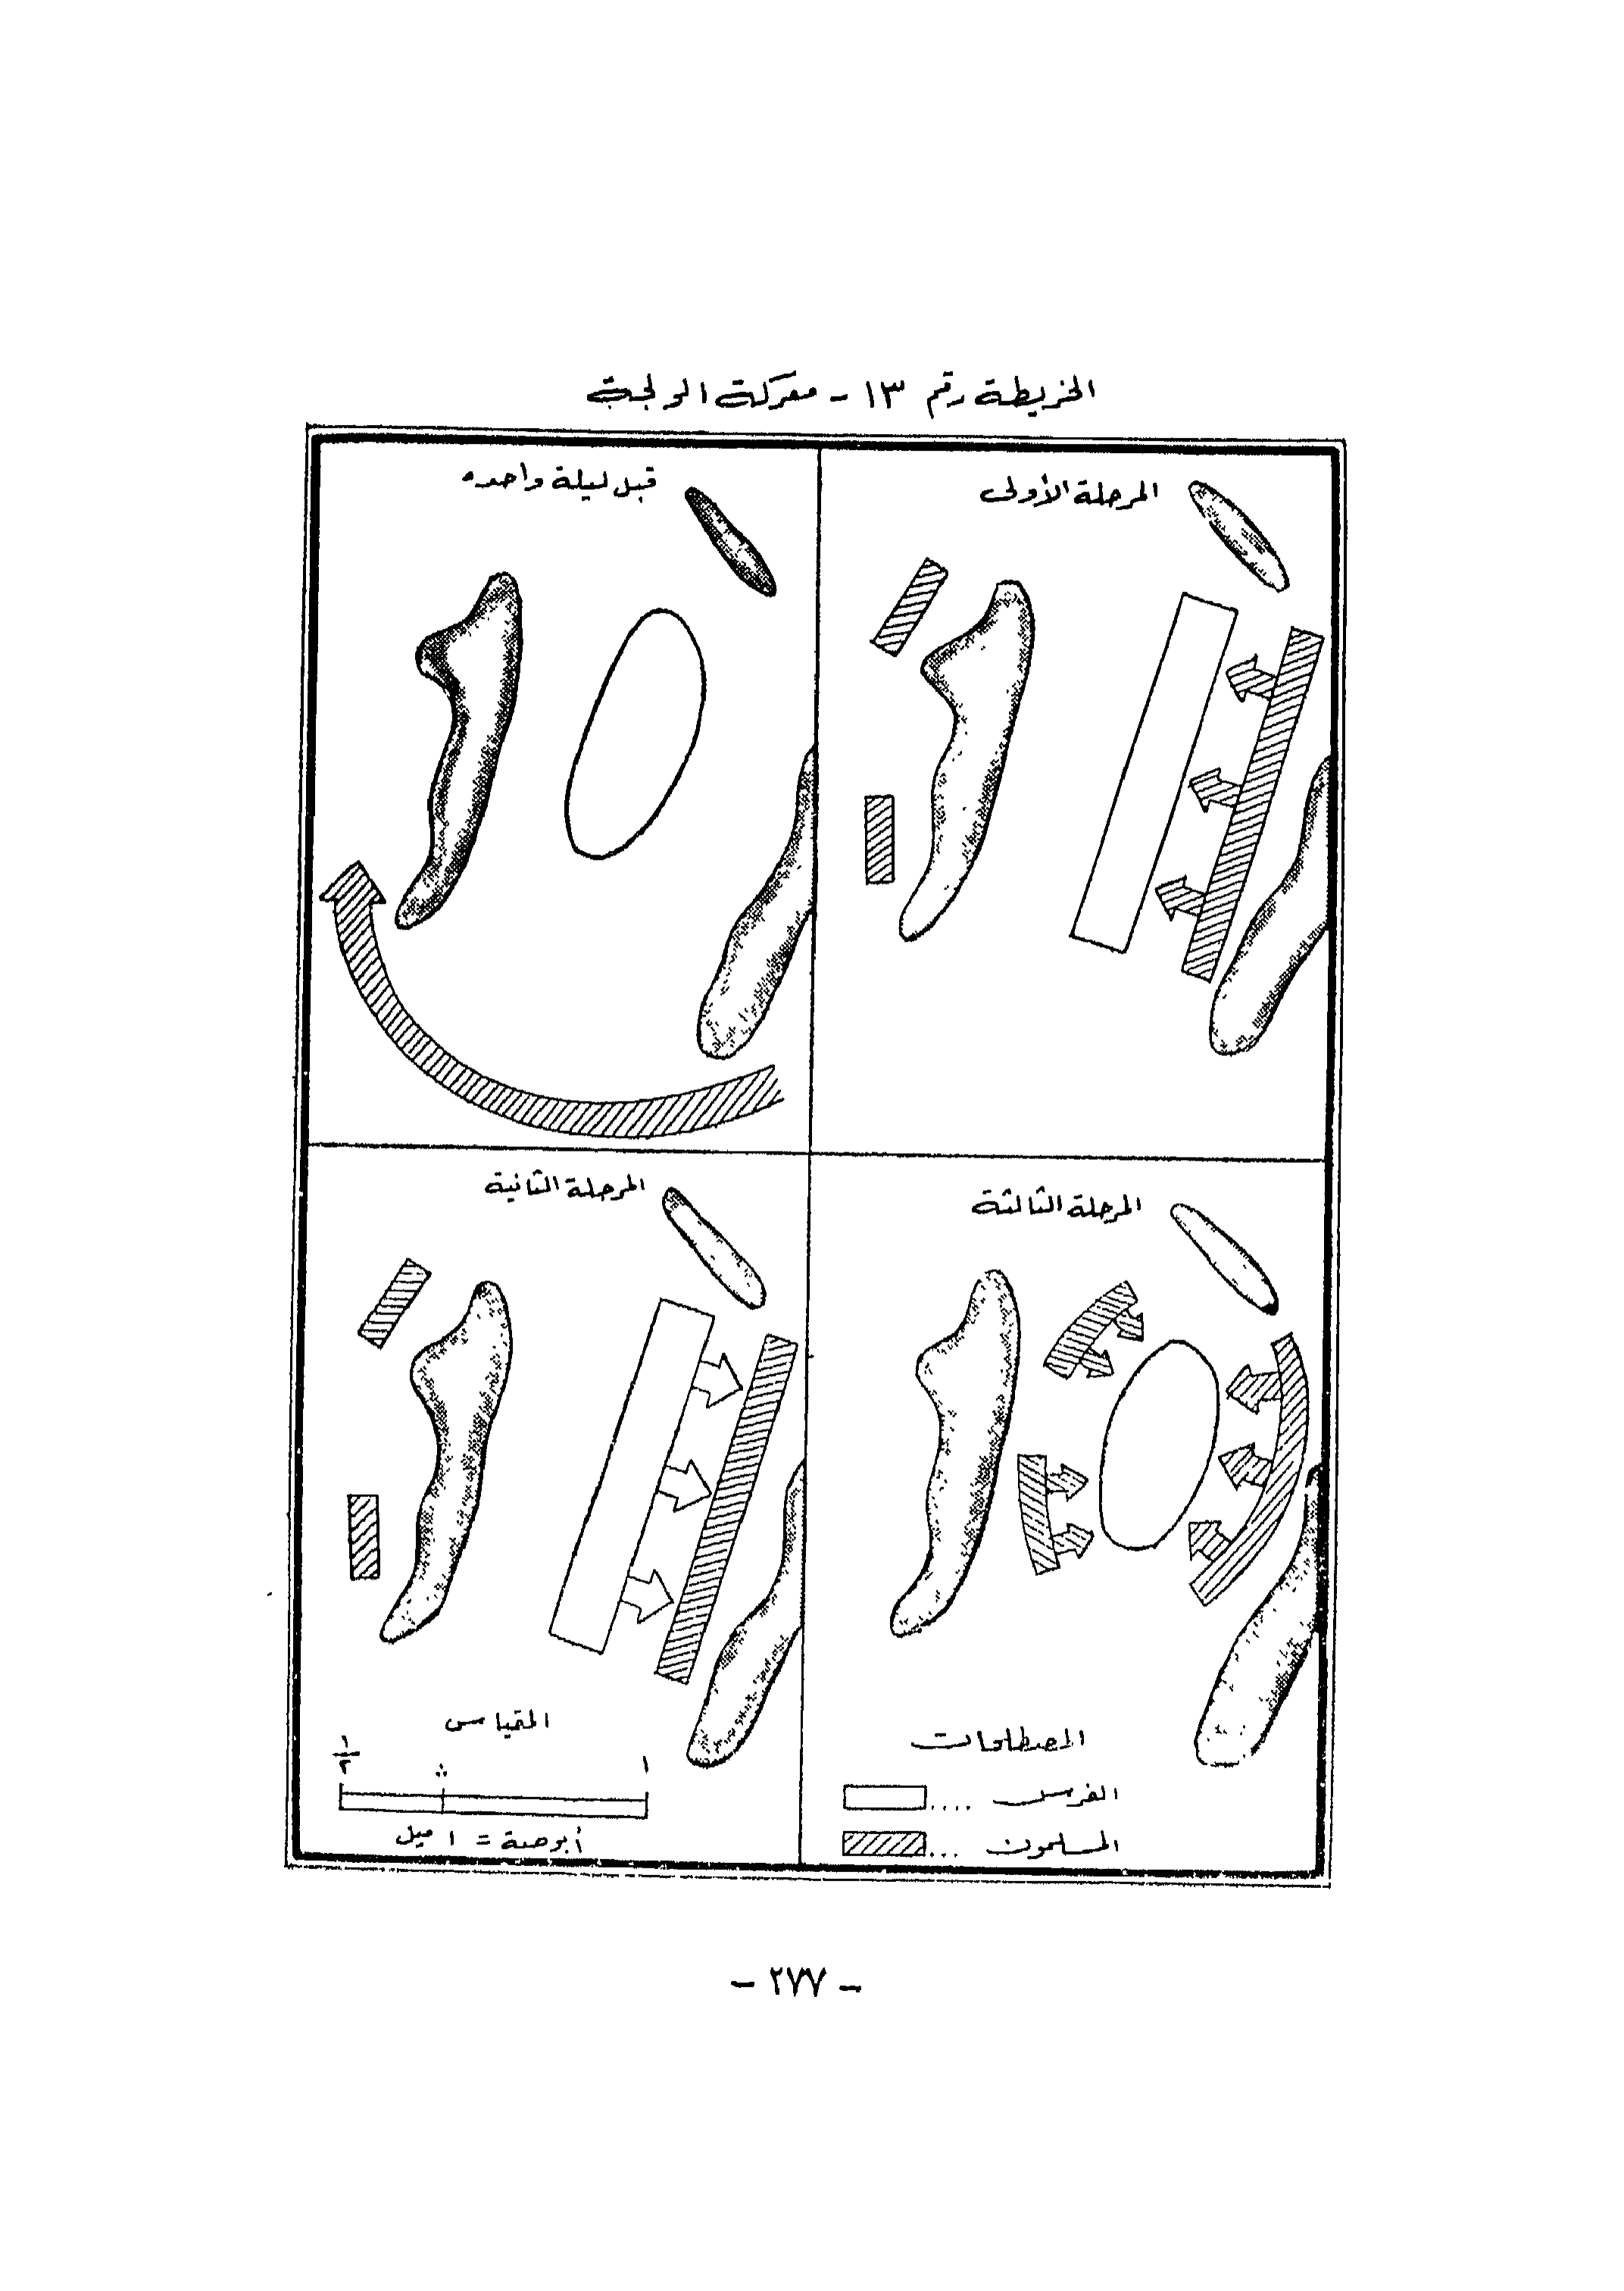 الخريطة رقم ١٣ - معركة الولجة
قبل ليلة واحده
المرحلة الأولى
المرحلة الثانية
المرحلة الثالثة
المقياس
١/٢ ٠ ١
أبوصة = ١ ميل
المصطلحات
الفرس ....
المسلمون ...
- ٢٧٧ -